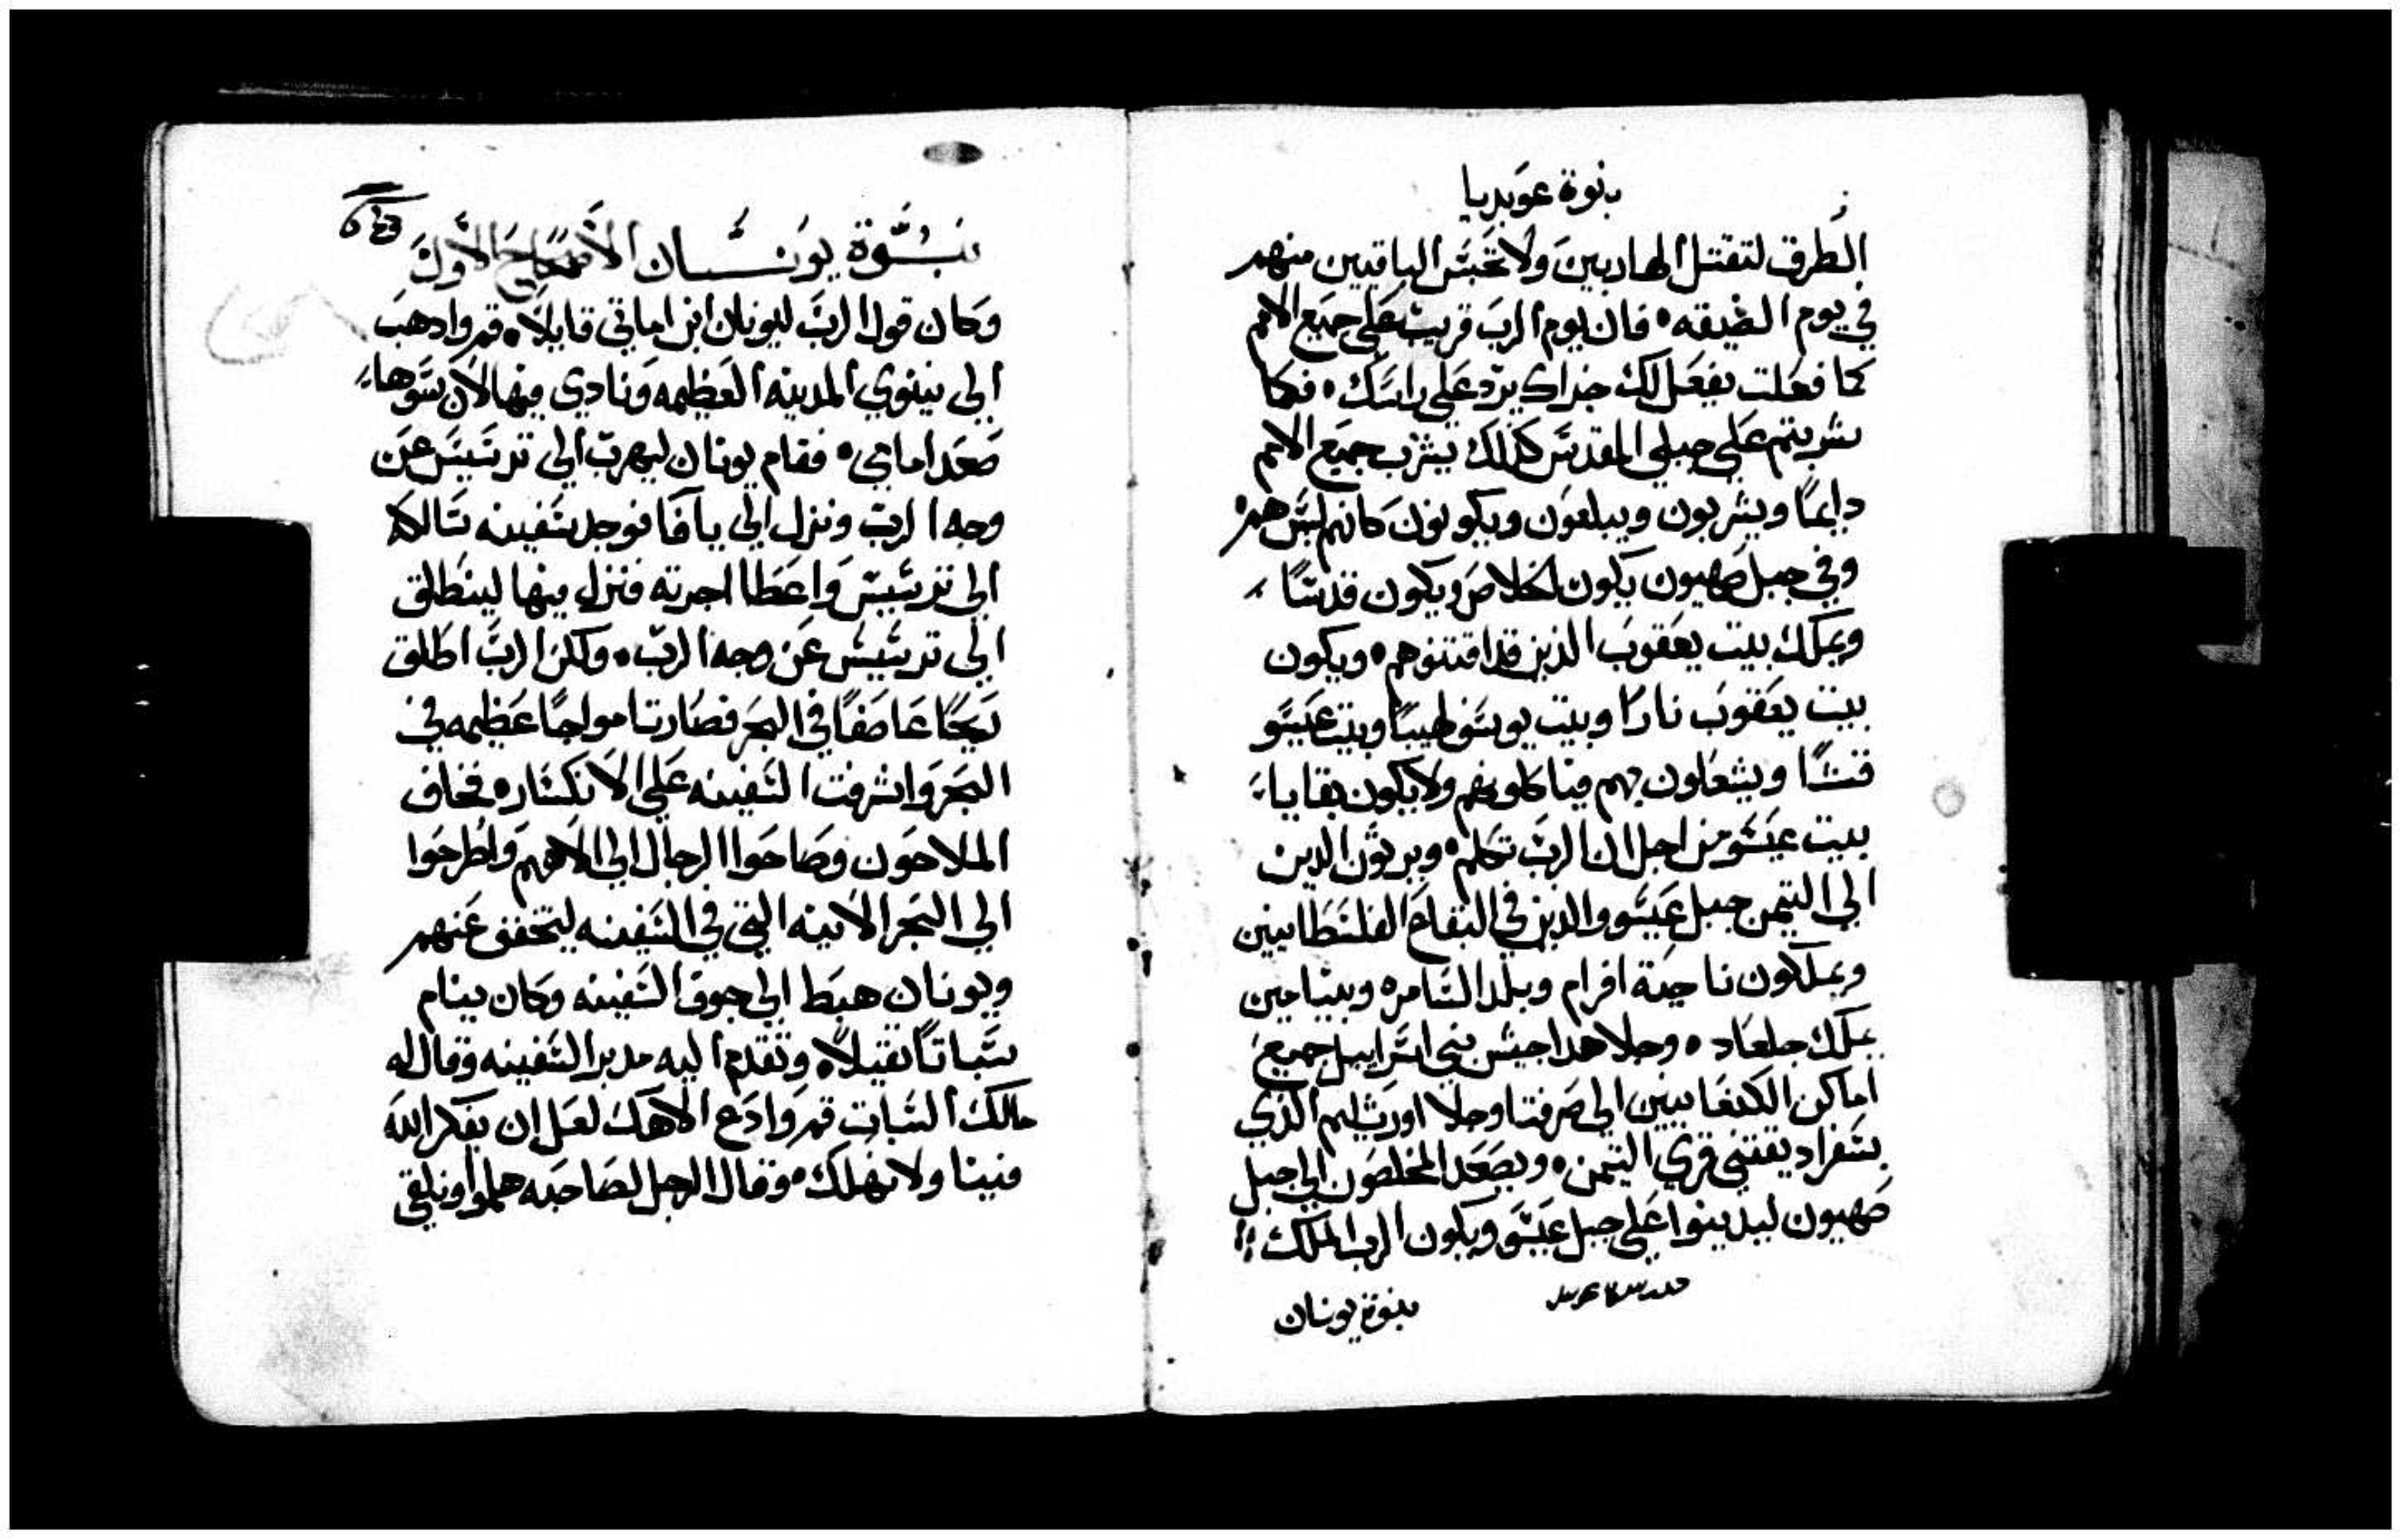 بنوة عوبديا
الطرق لتقتل الهاربين ولا تحبس الباقيين منهم
في يوم الضيقه فان يوم الرب قريب على جميع الامم
كما فعلت يفعل لك جزاك يرد على راسك فكما
شربتم على جبلي المقدس كذلك يشرب جميع الامم
دايمًا ويشربون ويبلعون ويكونون كانهم ليس هم
وفي جبل صهيون يكون الخلاص ويكون قدسًا
ويملك بيت يعقوب الذين قد اقتنوهم ويكون
بيت يعقوب نارًا وبيت يوسف لهيبًا وبيت عيسو
قشًا ويشعلون بهم فياكلونهم ولا يكون بقايا
بيت عيسو من اجل ان الرب تكلم ويرثون الدين
الى التيمن جبل عيسو والدين في البقاع الفلسطانيين
ويملكون ناحية افرام وبلد السامره وبنيامين
يملك جلعاد وجلا هدا جيش بني اسراييل جميع
اماكن الكنعانيين الى صرفتا وجلا اورشليم الذي
بسفراد يقتني قرى التيمن ويصعد المخلصون الى جبل
صهيون ليدينوا على جبل عيسو ويكون الرب الملك
بنوة يونان
نبوة يونان الأصحاح الأول
وكان قول الرب ليونان ابن اماتي قايلًا قم وادهب
الى نينوي المدينه العظيمه ونادي فيها لان سوها
صعد امامي فقام يونان ليهرب الى ترسيس عن
وجه الرب ونزل الى يافا فوجد سفينه سالكه
الى ترسيس واعطا اجرته فنزل فيها لينطلق
الى ترسيس عن وجه الرب ولكن الرب اطلق
ريحًا عاصفًا في البحر فصارت امواجًا عظيمه في
البحر واشرفت السفينه على الانكسار فخاف
الملاحون وصاحوا الرجال الى الاههم واطرحوا
الى البحر الانيه التي في السفينه ليتخفف عنهم
ويونان هبط الى جوف السفينه وكان ينام
سباتًا تقيلًا وتقدم اليه مدبر السفينه وقال له
مالك السبات قم وادع الاهك لعل ان يفكر الله
فينا ولا نهلك وقال الرجل لصاحبه هلموا ونلقي